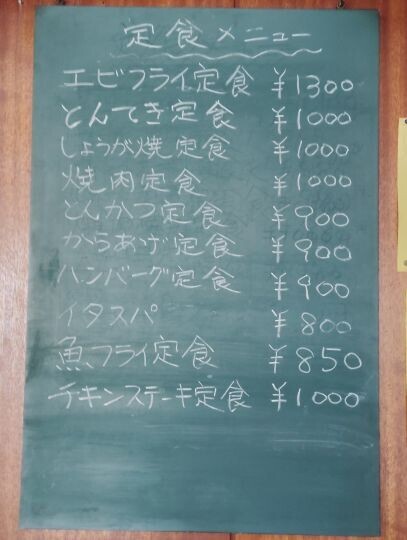 定食メニュー
エビフライ定食 ¥1300
とんてき定食 ¥1000
しょうが焼定食 ¥1000
焼肉定食 ¥1000
とんかつ定食 ¥900
からあげ定食 ¥900
ハンバーグ定食 ¥900
イタスパ ¥800
魚フライ定食 ¥850
チキンステーキ定食 ¥1000